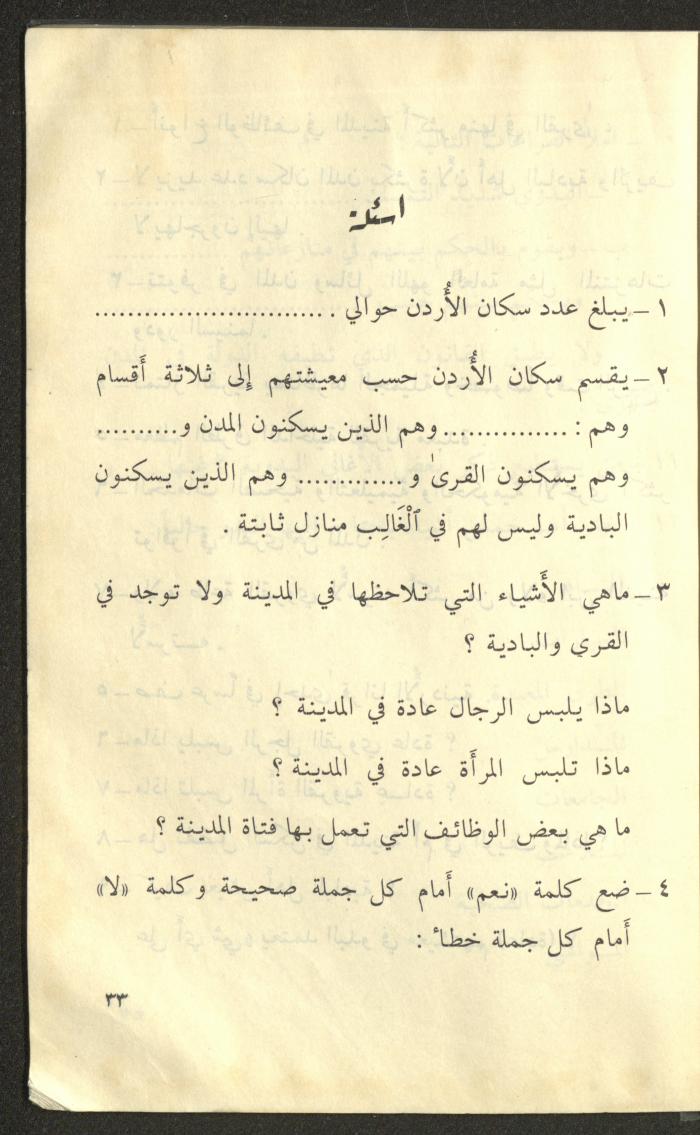 اسئلة
١ – يبلغ عدد سكان الأُردن حوالي ............................
٢ – يقسم سكان الأُردن حسب معيشتهم إِلى ثلاثة أَقسام
وهم : ............... وهم الذين يسكنون المدن و..........
وهم يسكنون القرىٰ و ............. وهم الذين يسكنون
البادية وليس لهم في ٱلْغَالِب منازل ثابتة .
٣ – ماهي الأَشياء التي تلاحظها في المدينة ولا توجد في
القرى والبادية ؟
ماذا يلبس الرجال عادة في المدينة ؟
ماذا تلبس المرأَة عادة في المدينة ؟
ما هي بعض الوظائف التي تعمل بها فتاة المدينة ؟
٤ – ضع كلمة «نعم» أَمام كل جملة صحيحة وكلمة «لا»
أَمام كل جملة خطأ :
٣٣